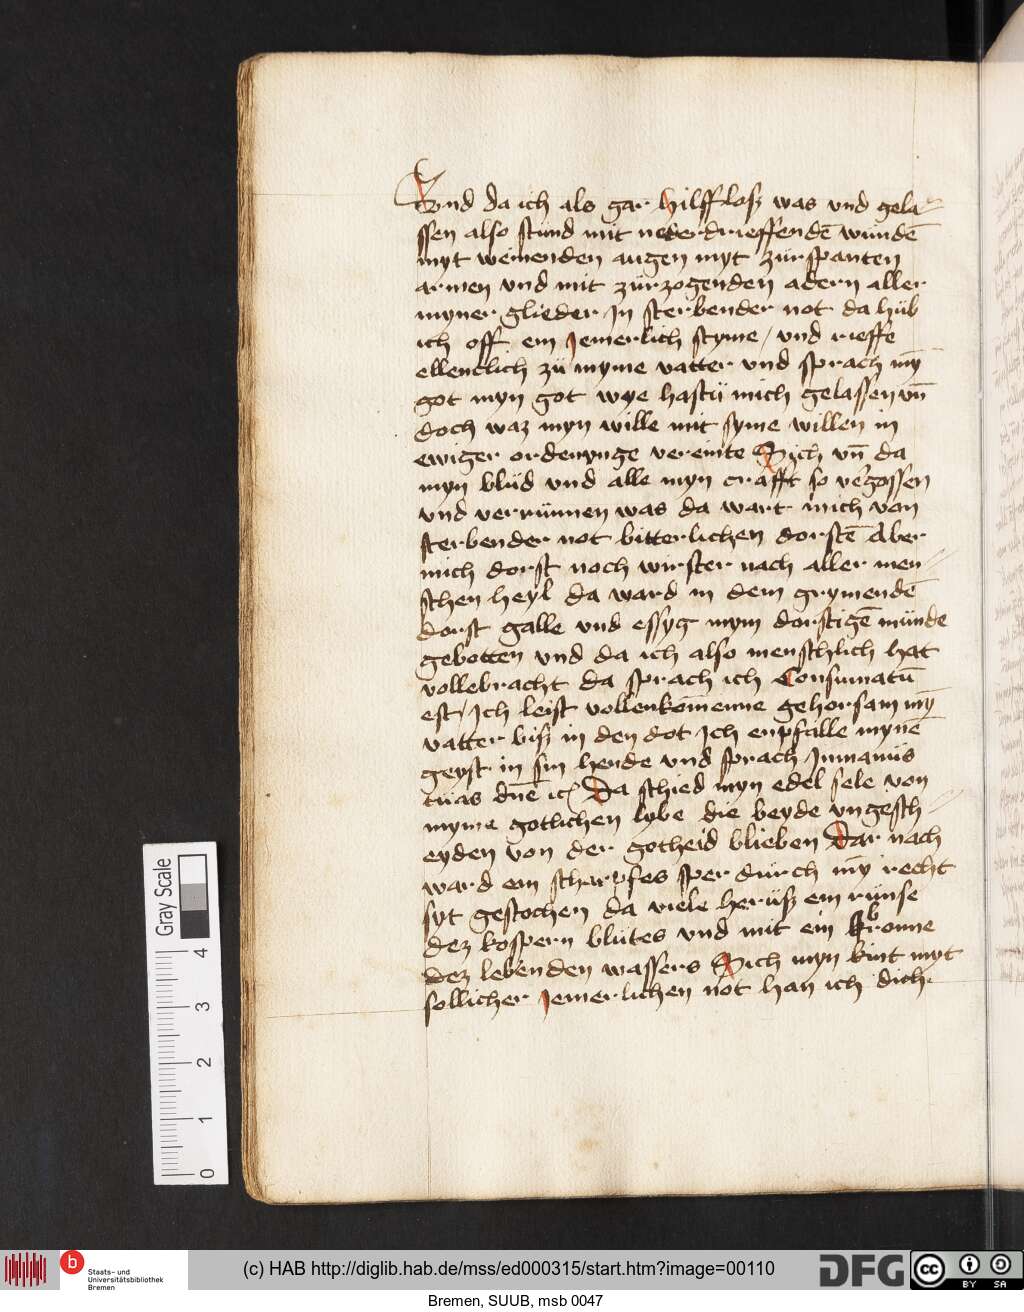 Vnd da ich als gar hilffloß was vnd gela-
ssen also stünd mit nederdrieffendē wündē
myt weinenden augen myt zürspanten
armen vnd mit zürzogenden adern aller
myner glieder In sterbender not da hüb
ich off ein Jemerlich styme / vnd rieffe
ellentlich zü myme vatter vnd sprach my̅
got myn got wye hastü mich gelassen vn̅
doch waz myn wille mit syme willen in
ewiger ordenynge vereinte Sich vn̅ da
myn blüd vnd alle myn crafft so v'gossen
vnd verrünnen was da wart mich von
sterbender not bitterlichen dorstē Aber
mich dorst noch wirster nach aller men-
schen heyl da ward in dem grymendē
dorst galle vnd essyg mym dorstigē münde
gebotten vnd da ich also menschlich hat
vollebracht da sprach ich Consumatū
est / Ich leist vollenkōmenne gehorsam my̅
vatter biß in den dot Ich enpfalle mynē
geyst in sin hende vnd sprach Inmanüs
tüas dn̄e ic̄ Da schied myn edel sele von
myme gotlichen lybe die beyde vngesch-
eyden von der gotheid blieben Dar nach
ward ein scharpfes sper dürch my̅ recht
syt gestochen da viele herüß ein rünse
dez kospern blütes vnd mit ein bronne
dez lebenden wassers Sich myn kint myt
sollicher Jemerlichen not han ich dich
Gray Scale
0 1 2 3 4
b
Staats- und
Universitätsbibliothek
Bremen
(c) HAB http://diglib.hab.de/mss/ed000315/start.htm?image=00110
DFG
cc BY SA
Bremen, SUUB, msb 0047